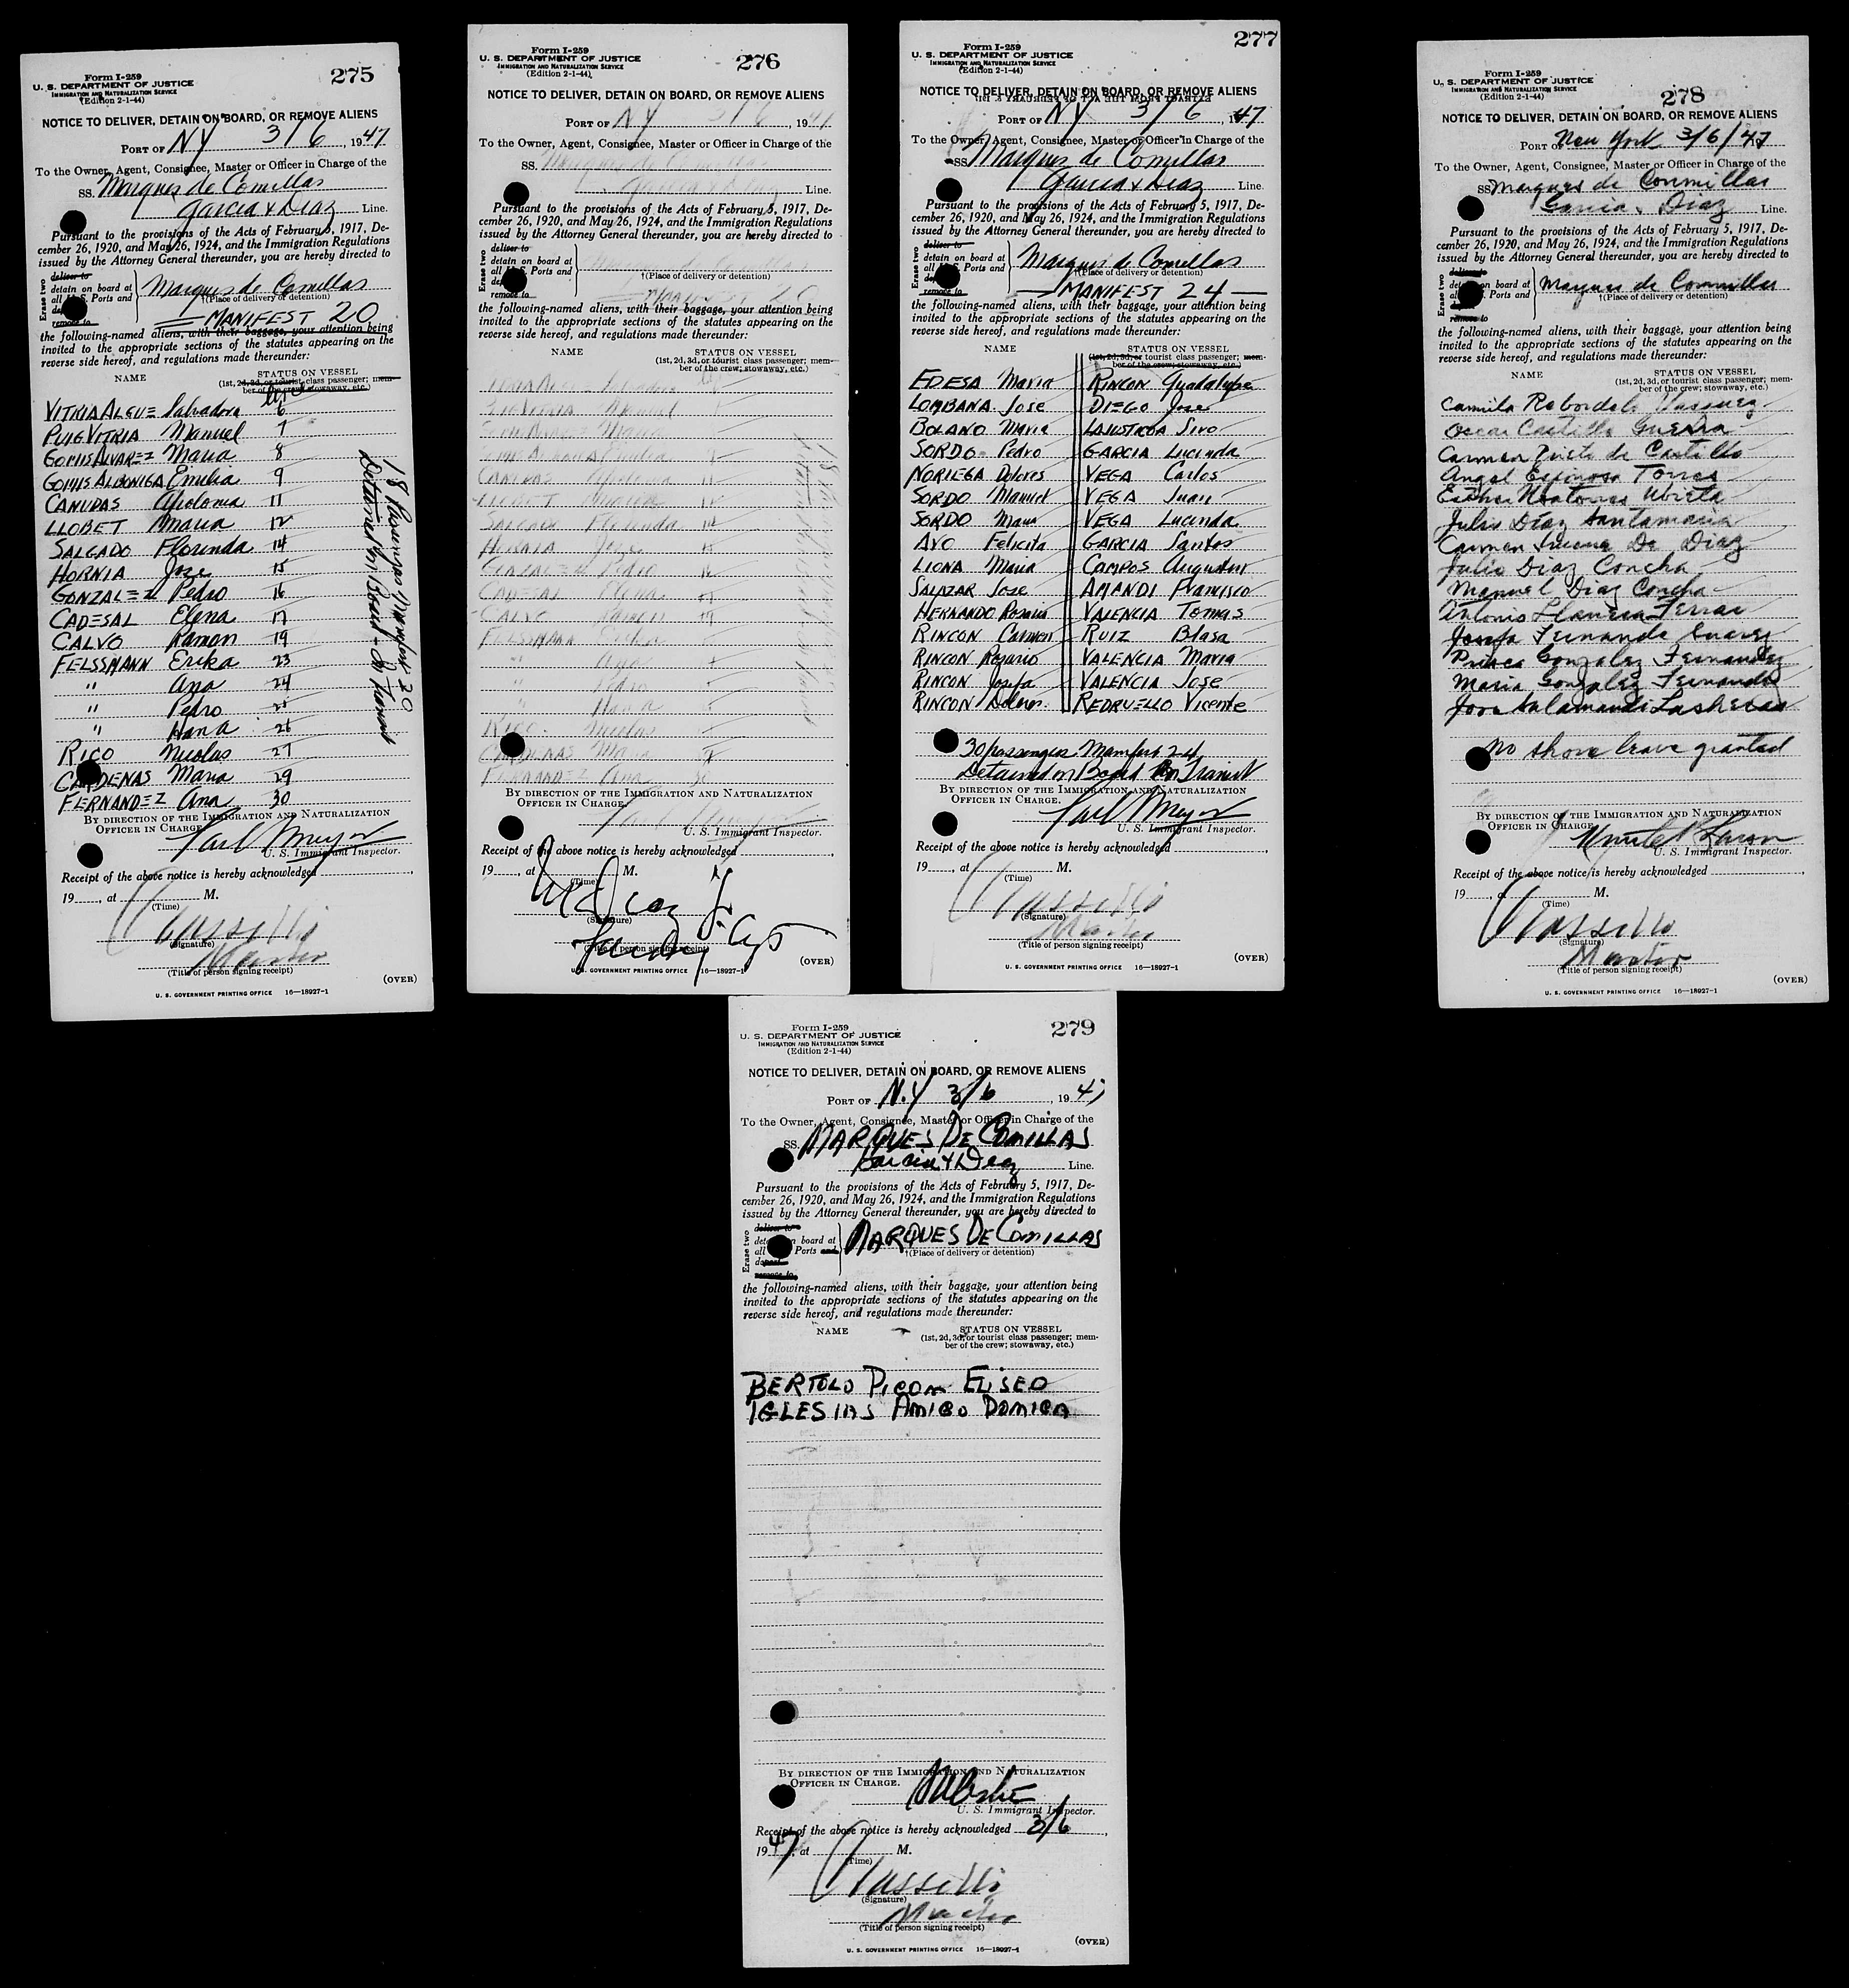 Form I-259
275
U. S. DEPARTMENT OF JUSTICE
IMMIGRATION AND NATURALIZATION SERVICE
(Edition 2-1-44)
NOTICE TO DELIVER, DETAIN ON BOARD, OR REMOVE ALIENS
PORT OF NY 3/6, 1947
To the Owner, Agent, Consignee, Master or Officer in Charge of the
SS. Marques de Comillas
Garcia & Diaz Line.
Pursuant to the provisions of the Acts of February 5, 1917, De-
cember 26, 1920, and May 26, 1924, and the Immigration Regulations
issued by the Attorney General thereunder, you are hereby directed to
Erase two
deliver to
detain on board at
all U.S. Ports and
remove to
Marques de Comillas
†(Place of delivery or detention)
MANIFEST 20
the following-named aliens, with their baggage, your attention being
invited to the appropriate sections of the statutes appearing on the
reverse side hereof, and regulations made thereunder:
NAME STATUS ON VESSEL
(1st, 2d, 3d, or tourist class passenger; mem-
ber of the crew; stowaway, etc.)
Line
VITRIA ALGUE Salvadora 6
PUIG VITRIA Manuel 7
GOMIS ALVAREZ Maria 8
GOMIS ALBONIGA Emilia 9
CANUDAS Apolonia 11
LLOBET Maria 12
SALGADO Florinda 14
HORNIA Jose 15
GONZALEZ Pedro 16
CADESAL Elena 17
CALVO Ramon 19
FELSSMANN Erika 23
" Ana 24
" Pedro 25
" Hana 26
RICO Nicolas 27
CARDENAS Maria 29
FERNANDEZ Ana 30
18 Passengers Manifest 20
Detained on Board - In Transit
BY DIRECTION OF THE IMMIGRATION AND NATURALIZATION
OFFICER IN CHARGE.
Karl Meyer
U. S. Immigrant Inspector.
Receipt of the above notice is hereby acknowledged
19, at M.
(Time)
(Signature)
Master
(Title of person signing receipt)
(OVER)
U. S. GOVERNMENT PRINTING OFFICE 16—18927-1
Form I-259
276
U. S. DEPARTMENT OF JUSTICE
IMMIGRATION AND NATURALIZATION SERVICE
(Edition 2-1-44)
NOTICE TO DELIVER, DETAIN ON BOARD, OR REMOVE ALIENS
PORT OF NY 3/6, 1947
To the Owner, Agent, Consignee, Master or Officer in Charge of the
SS. Marques de Comillas
Garcia & Diaz Line.
Pursuant to the provisions of the Acts of February 5, 1917, De-
cember 26, 1920, and May 26, 1924, and the Immigration Regulations
issued by the Attorney General thereunder, you are hereby directed to
Erase two
deliver to
detain on board at
all U.S. Ports and
remove to
Marques de Comillas
†(Place of delivery or detention)
MANIFEST 20
the following-named aliens, with their baggage, your attention being
invited to the appropriate sections of the statutes appearing on the
reverse side hereof, and regulations made thereunder:
NAME STATUS ON VESSEL
(1st, 2d, 3d, or tourist class passenger; mem-
ber of the crew; stowaway, etc.)
VITRIA ALGUE Salvadora
PUIG VITRIA Manuel
GOMIS ALVAREZ Maria
GOMIS ALBONIGA Emilia
CANUDAS Apolonia 11
LLOBET Maria 12
SALGADO Florinda 14
HORNIA Jose 15
GONZALEZ Pedro 16
CADESAL Elena 17
CALVO Ramon 19
FELSSMANN Erika
" Ana
" Pedro
" Hana
RICO Nicolas
CARDENAS Maria
FERNANDEZ Ana 30
BY DIRECTION OF THE IMMIGRATION AND NATURALIZATION
OFFICER IN CHARGE.
Karl Meyer
U. S. Immigrant Inspector.
Receipt of the above notice is hereby acknowledged
19, at M.
(Time)
(Signature)
(Title of person signing receipt)
(OVER)
U. S. GOVERNMENT PRINTING OFFICE 16—18927-1
277
Form I-259
U. S. DEPARTMENT OF JUSTICE
IMMIGRATION AND NATURALIZATION SERVICE
(Edition 2-1-44)
NOTICE TO DELIVER, DETAIN ON BOARD, OR REMOVE ALIENS
PORT OF NY 3/6, 47
To the Owner, Agent, Consignee, Master or Officer in Charge of the
SS. Marques de Comillas
Garcia & Diaz Line.
Pursuant to the provisions of the Acts of February 5, 1917, De-
cember 26, 1920, and May 26, 1924, and the Immigration Regulations
issued by the Attorney General thereunder, you are hereby directed to
Erase two
deliver to
detain on board at
all U.S. Ports and
remove to
Marques de Comillas
†(Place of delivery or detention)
MANIFEST 24
the following-named aliens, with their baggage, your attention being
invited to the appropriate sections of the statutes appearing on the
reverse side hereof, and regulations made thereunder:
NAME STATUS ON VESSEL
(1st, 2d, 3d, or tourist class passenger; mem-
ber of the crew; stowaway, etc.)
EDESA Maria RINCON Guadalupe
LOMBANA Jose DIEGO Jose
BOLANO Maria LAUSTROA Sivo
SORDO Pedro GARCIA Lucinda
NORIEGA Dolores VEGA Carlos
SORDO Manuel VEGA Juan
SORDO Maria VEGA Lucinda
AVO Felicita GARCIA Santos
LIONA Maria CAMPOS Augustin
SALAZAR Jose AMANDI Francisco
HERNANDO Rosalia VALENCIA Tomas
RINCON Carmen RUIZ Blasa
RINCON Rosario VALENCIA Maria
RINCON Josefa VALENCIA Jose
RINCON Dolores REDRUELLO Vicente
30 passengers Manifest 24
Detained on Board In Transit
BY DIRECTION OF THE IMMIGRATION AND NATURALIZATION
OFFICER IN CHARGE.
Karl Meyer
U. S. Immigrant Inspector.
Receipt of the above notice is hereby acknowledged
19, at M.
(Time)
(Signature)
Master
(Title of person signing receipt)
(OVER)
U. S. GOVERNMENT PRINTING OFFICE 16—18927-1
Form I-259
U. S. DEPARTMENT OF JUSTICE
IMMIGRATION AND NATURALIZATION SERVICE
(Edition 2-1-44)
278
NOTICE TO DELIVER, DETAIN ON BOARD, OR REMOVE ALIENS
PORT OF New York 3/6/47
To the Owner, Agent, Consignee, Master or Officer in Charge of the
SS Marques de Conmillas
Garcia & Diaz Line.
Pursuant to the provisions of the Acts of February 5, 1917, De-
cember 26, 1920, and May 26, 1924, and the Immigration Regulations
issued by the Attorney General thereunder, you are hereby directed to
Erase two
detain on board at
all U.S. Ports and
remove to
Marques de Conmillas
†(Place of delivery or detention)
the following-named aliens, with their baggage, your attention being
invited to the appropriate sections of the statutes appearing on the
reverse side hereof, and regulations made thereunder:
NAME STATUS ON VESSEL
(1st, 2d, 3d, or tourist class passenger; mem-
ber of the crew; stowaway, etc.)
Camila Rebordelo Vasquez
Oscar Castillo Guerra
Carmen Prieto de Castillo
Angel Espinosa Torres
Esther Urieta
Julio Diaz Santamaria
Carmen De Diaz
Julio Diaz Concha
Manuel Diaz Concha
Antonio Llaneza Ferrao
Josefa Fernande Suarez
Prisca Gonzalez Fernandez
Maria Gonzalez Fernandez
Jose Salamendi Lasheras
No shore leave granted
BY DIRECTION OF THE IMMIGRATION AND NATURALIZATION
OFFICER IN CHARGE.
U. S. Immigrant Inspector.
Receipt of the above notice is hereby acknowledged
19, at M.
(Time)
(Signature)
Master
(Title of person signing receipt)
(OVER)
U. S. GOVERNMENT PRINTING OFFICE 16—18927-1
Form I-259
279
U. S. DEPARTMENT OF JUSTICE
IMMIGRATION AND NATURALIZATION SERVICE
(Edition 2-1-44)
NOTICE TO DELIVER, DETAIN ON BOARD, OR REMOVE ALIENS
PORT OF N.Y 3/6, 1947
To the Owner, Agent, Consignee, Master or Officer in Charge of the
SS. MARQUES DE COMILLAS
Garcia & Diaz Line.
Pursuant to the provisions of the Acts of February 5, 1917, De-
cember 26, 1920, and May 26, 1924, and the Immigration Regulations
issued by the Attorney General thereunder, you are hereby directed to
Erase two
deliver to
detain on board at
all Ports and
deport
remove to
MARQUES DE COMILLAS
†(Place of delivery or detention)
the following-named aliens, with their baggage, your attention being
invited to the appropriate sections of the statutes appearing on the
reverse side hereof, and regulations made thereunder:
NAME STATUS ON VESSEL
(1st, 2d, 3d, or tourist class passenger; mem-
ber of the crew; stowaway, etc.)
BERTOLO PICON ELISEO
IGLESIAS AMIGO DOMIGA
BY DIRECTION OF THE IMMIGRATION AND NATURALIZATION
OFFICER IN CHARGE.
U. S. Immigrant Inspector.
Receipt of the above notice is hereby acknowledged 3/6,
1947, at M.
(Time)
(Signature)
Master
(Title of person signing receipt)
(OVER)
U. S. GOVERNMENT PRINTING OFFICE 16—18927-1